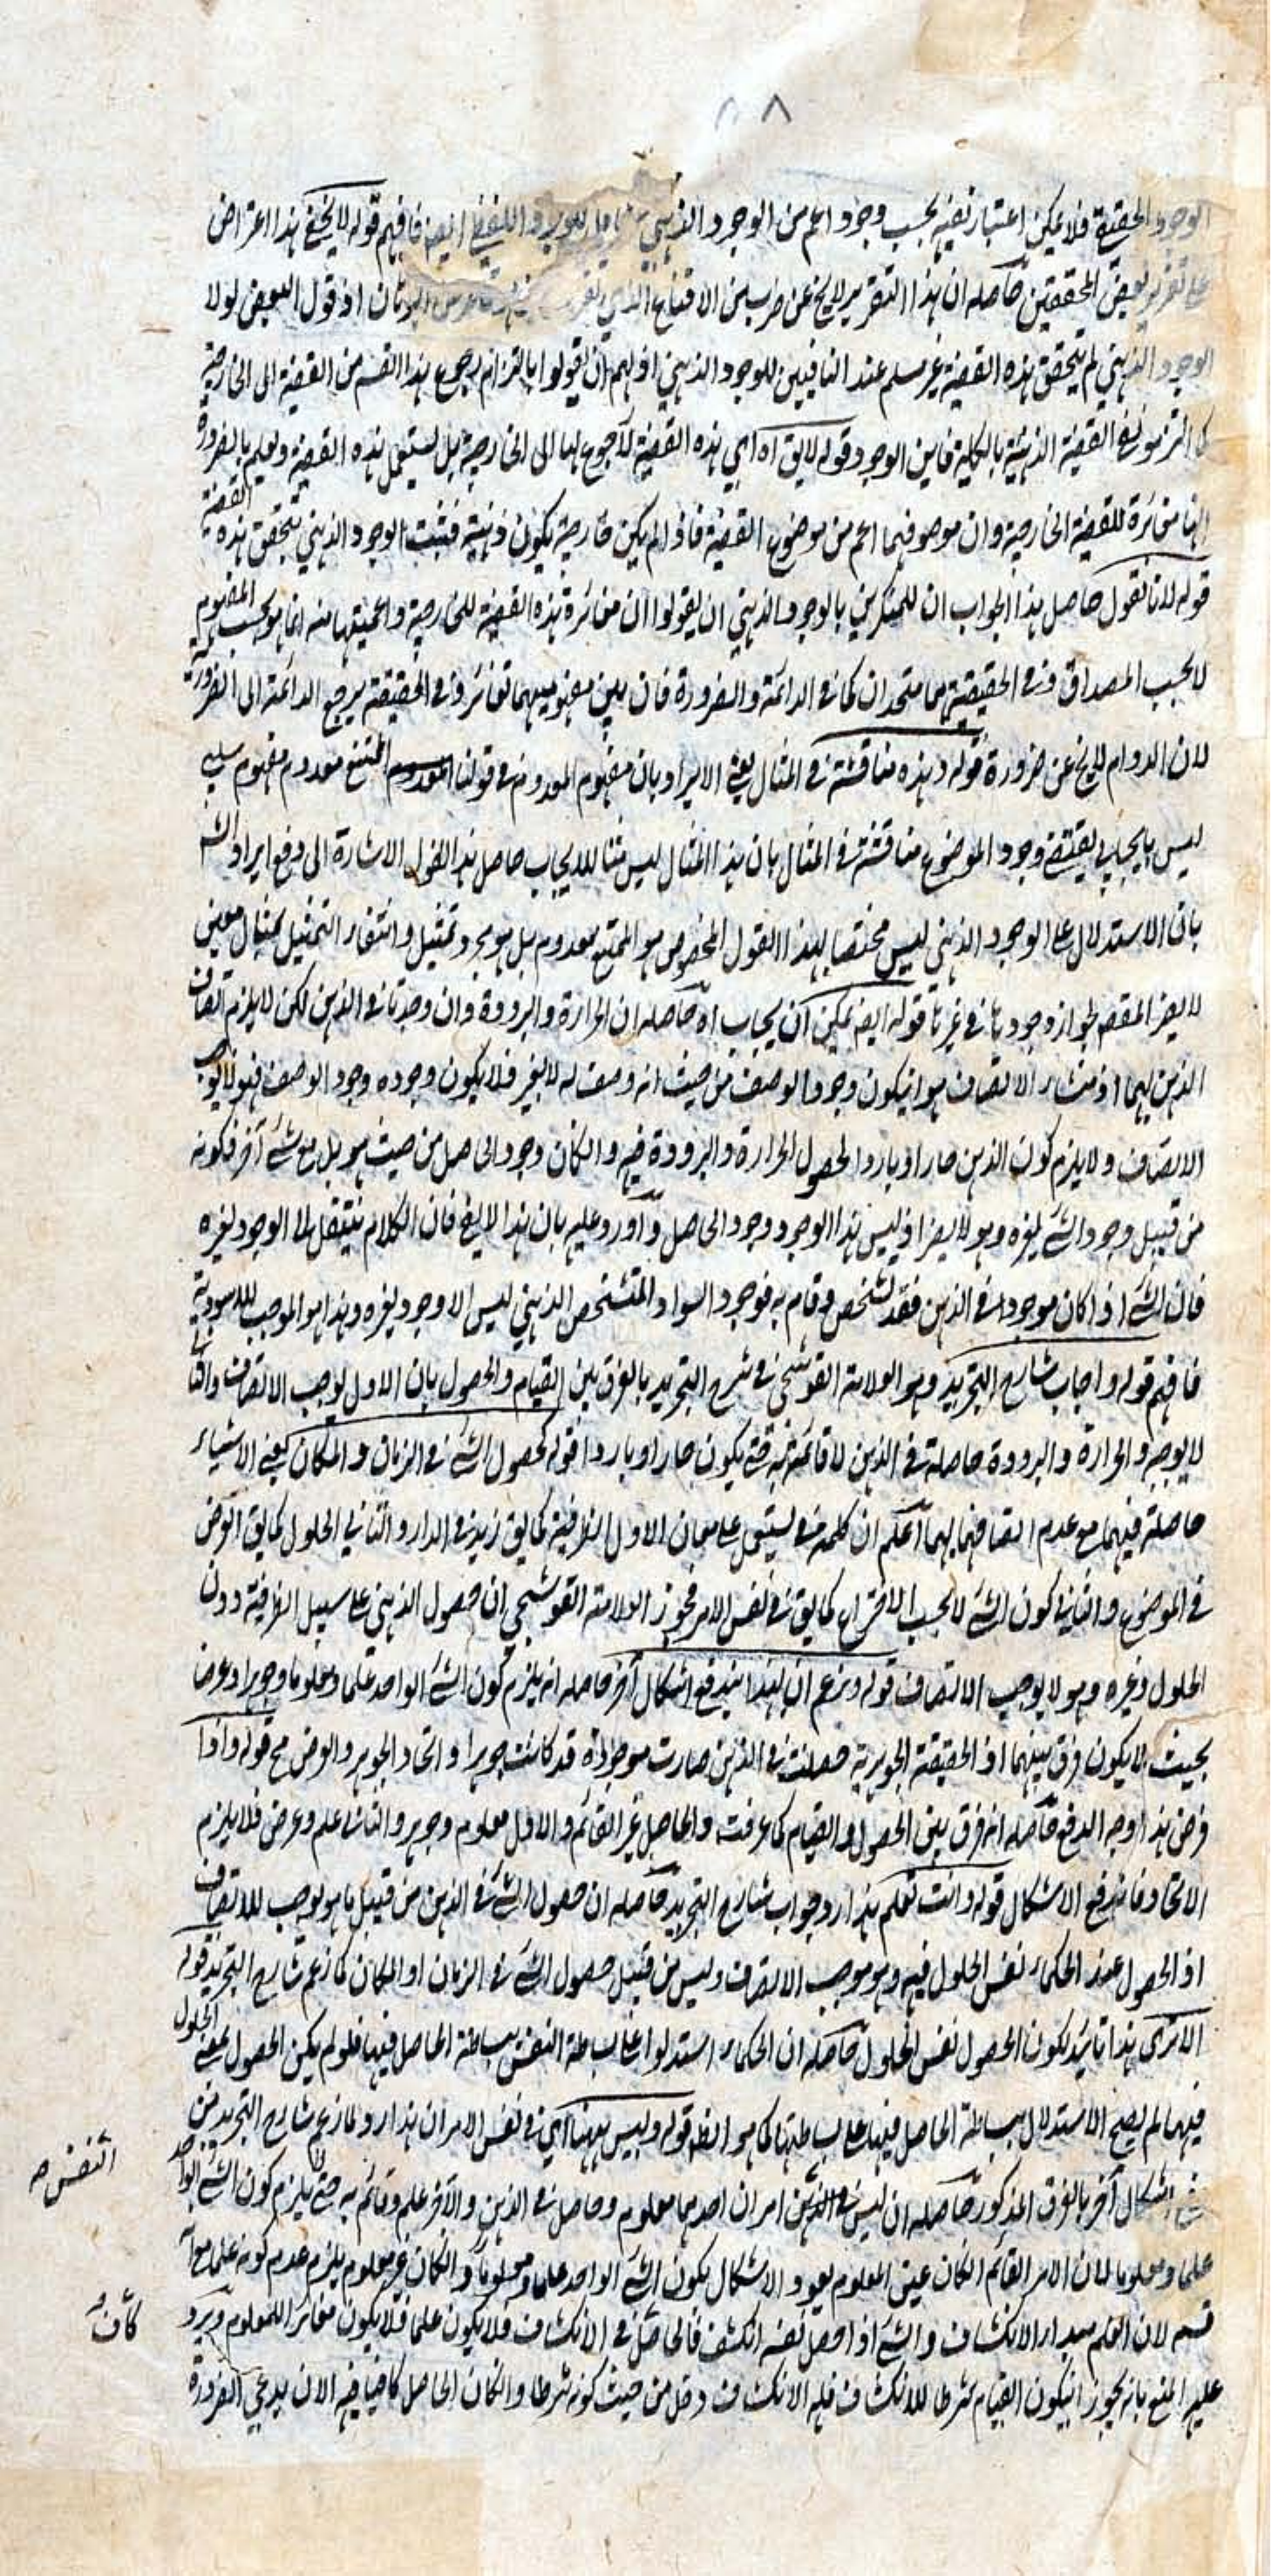 ٨٨
الوجود الحقيقة فلا يمكن اعتبار نفيه بحسب وجود اعم من الوجود الذهني فافهم قوله لا يخفى هذا اعتراض
على تقرير بعض المحققين حاصله ان هذا التقرير لا يخ عن ضرب من الاقناع اذ قول البعض لولا
الوجود الذهني لم يتحقق هذه القضية غير مسلم عند النافيين للوجود الذهني اذ لهم ان يقولوا بالتزام رجوع هذا القسم من القضية الى الخارجية
القضية الذهنية بالكلية فاين الوجود قوله لا يق اه اي هذه القضية لا رجوع لها الى الخارجية بل يستعمل هذه القضية ونعلم بالضرورة
انها مغائرة للقضية الخارجية وان موصوفها اعم من موضوع القضية فاذا لم يكن خارجية يكون ذهنية فثبت الوجود الذهني بتحقق هذه القضية
قوله لانا نقول حاصل هذا الجواب ان للمنكرين بالوجود الذهني ان يقولوا ان مغائرة هذه القضية للخارجية واعميتها منه انما هو بحسب المفهوم
لا بحسب المصداق وفي الحقيقة هما متحدان كما في الدائمة والضرورة فان بين مفهوميهما تغائر وفي الحقيقة يرجع الدائمة الى الضرورية
لان الدوام لا يخ عن ضرورة قوله وهذه مناقشة في المثال يعني الايراد بان مفهوم المعدوم في قولنا الممتنع معدوم مفهوم سلبي
ليس بايجابي يقتضي وجود الموضوع مناقشة في المثال بان هذا المثال ليس مثالا للايجاب حاصل هذا القول الاشارة الى دفع ايراد الشه
بان الاستدلال على الوجود الذهني ليس مختصا بهذا القول المخصوص هو الممتنع معدوم بل هو مجرد تمثيل وانتفاء التمثيل بمثال معين
لا يضر المقصود لجواز وجود ها في غيرها قوله ايضه يمكن ان يجاب اه حاصله ان الحرارة والبرودة وان وجدتا في الذهن لكن لا يلزم اتصاف
الذهن بهما اذ منشاء الاتصاف هو ان يكون وجود الوصف من حيث انه وصف له لا لغير فلا يكون وجوده وجود الوصف فهو لا يوجب
الاتصاف ولا يلزم كون الذهن حارا وباردا لحصول الحرارة والبرودة فيه وان كان وجود الحاصل من حيث هو بل مع شئ آخر فكونه
من قبيل وجود الشئ لغيره وهو لا يضر اذ ليس هذا الوجود وجود الحاصل وآورد عليه بان هذا لا يفى فان الكلام ينتقل الى الوجود لغيره
فان الشئ اذا كان موجودا في الذهن فقد تشخص وقام به فوجود السواد المتشخص الذهني ليس الا وجود لغيره وهذا هو الموجب للاسودية
فافهم قوله واجاب شارح التجريد وهو العلامة القوشجي في شرح التجريد بالفرق بين القيام والحصول بان الاول يوجب الاتصاف والثاني
لا يوجبه والحرارة والبرودة حاصلة في الذهن لا قائمة به حتى يكون حارا وباردا قوله كحصول الشئ في الزمان والمكان يعني الاشياء
حاصلة فيهما مع عدم اتصافهما بهما اعلم ان كلمة في يستعمل على معان الاول الظرفية كما يق زيد في الدار والثاني الحلول كما يق العرض
في الموضوع والثالث كون الشئ لا بحسب الاختراع كما يق في نفس الامر فجوز العلامة القوشجي ان حصول الذهني على سبيل الظرفية دون
الحلول وغيره وهو لا يوجب الاتصاف قوله وزعم ان بهذا يندفع اشكال آخر حاصله انه يلزم كون الشئ الواحد علما ومعلوما وجوهرا وعرضا
بحيث لا يكون فرق بينهما اذ الحقيقة الجوهرية حصلت في الذهن صارت موجودة قد كانت جوهرا واتحاد الجوهر والعرض مح قوله واذا
فرض هذا وجه الدفع حاصله انه فرق بين الحصول والقيام كما عرفت والحاصل غير القائم والاول معلوم وجوهر والثاني علم وعرض فلا يلزم
الاتحاد فاندفع الاشكال قوله وانت تعلم هذا رد جواب شارح التجريد حاصله ان حصول الشئ في الذهن من قبيل ما هو يوجب للاتصاف
اذ الحصول عند الحكماء نفس الحلول فيه وهو موجب الاتصاف وليس من قبيل حصول الشئ في الزمان او المكان كما زعم شارح التجريد قوله
الا ترى هذا تائيد لكون الحصول نفس الحلول حاصله ان الحكماء استدلوا على بساطة النفس ببساطة الحاصل فيها فلو لم يكن الحصول بمعنى الحلول
فيهما لم يصح الاستدلال ببساطة الحاصل فيها على بساطتها كما هو الظ قوله وليس ههنا اي في نفس الامر ان هذا رد لما زعم شارح التجريد من
اشكال آخر بالفرق المذكور حاصله ان ليس في الذهن امران احدهما معلوم وحاصل في الذهن والآخر علم وقائم به حتى يلزم كون الشئ الواحد
علما ومعلوما لان الامر القائم ان كان عين المعلوم يعود الاشكال بكون الشئ الواحد علما ومعلوما وان كان غير معلوم يلزم عدم كونه علما مع انه
قسم لان العلم مبداء الانكشاف والشئ اذا حصل نفسه انكشف فالحاصل في الانكشاف فلا يكون علما فلا يكون مغائرا للمعلوم ويرد
عليه المنع بانه يجوز ان يكون القيام شرطا للانكشاف فله الانكشاف دخل من حيث كونه شرطا وان كان الحاصل كافيا فيه الا ان يدعي الضرورة
النفس صه
كاف